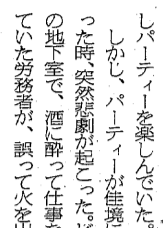 しパーティーを楽しんでいた。
しかし、パーティーが佳境に
った時、突然悲劇が起こった。ビ
の地下室で、酒に酔って仕事を
ていた労務者が、誤って火を出